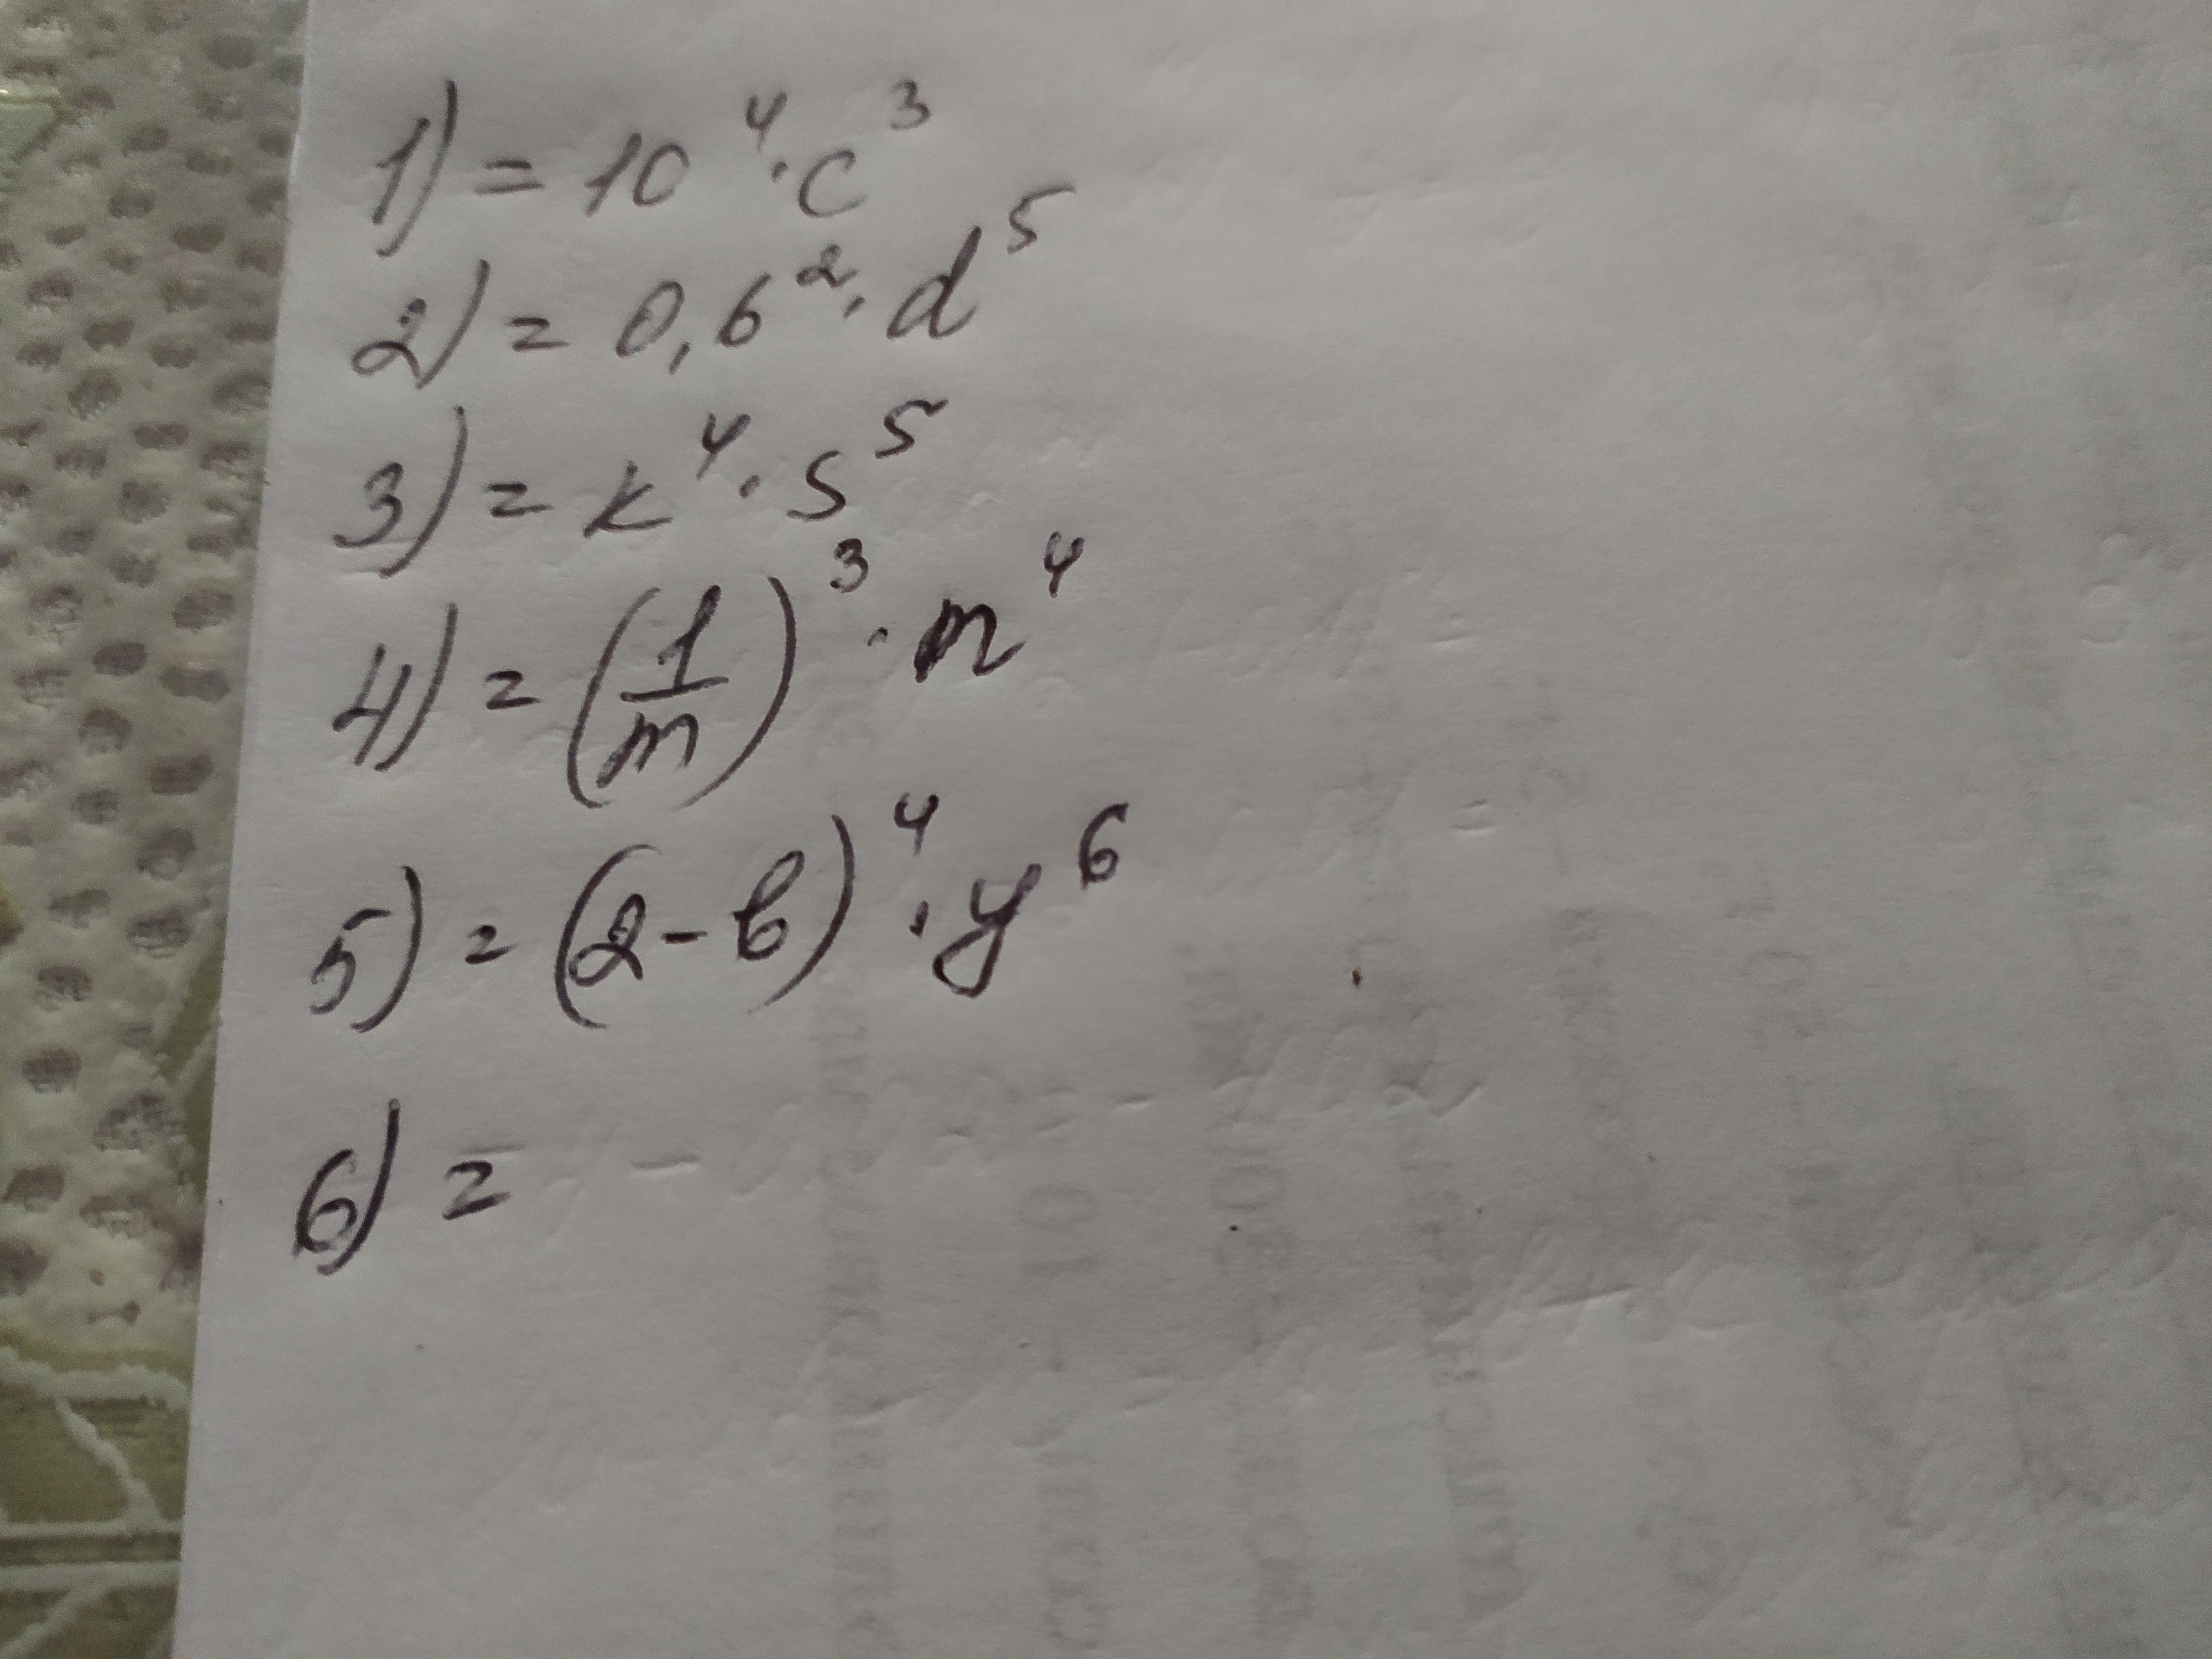 1) = 10⁴ · c³
2) = 0,6² · d⁵
3) = k⁴ · s⁵
4) = (1/m)³ · n⁴
5) = (2 - b)⁴ · y⁶
6) =